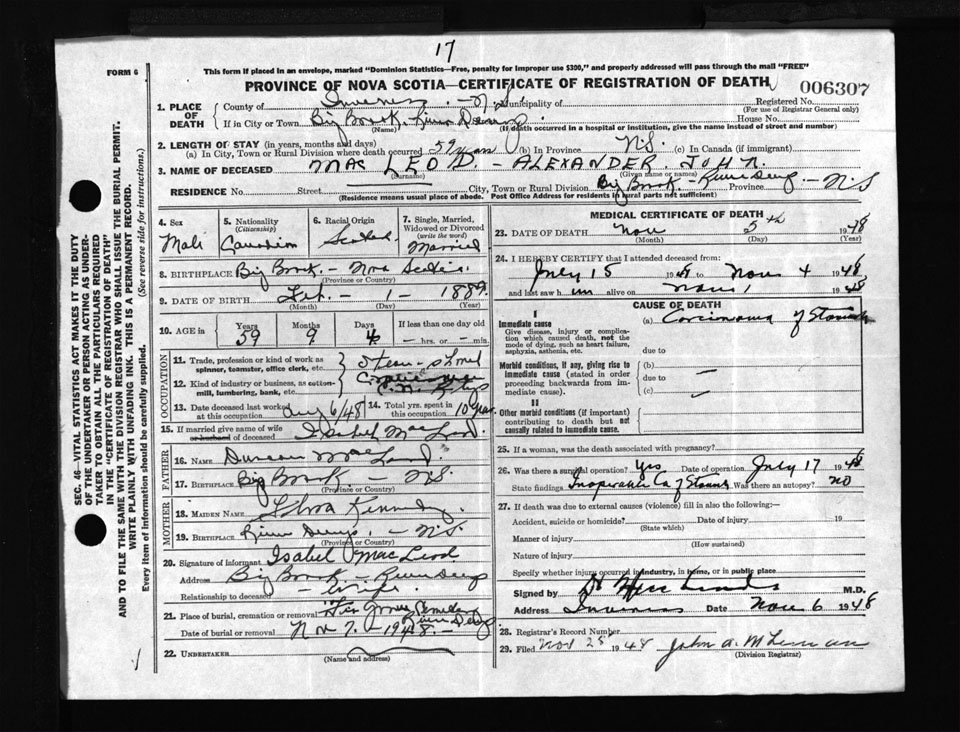 17
FORM 6
This form if placed in an envelope, marked "Dominion Statistics—Free, penalty for improper use $300," and properly addressed will pass through the mail "FREE"
PROVINCE OF NOVA SCOTIA—CERTIFICATE OF REGISTRATION OF DEATH
006307
1. PLACE OF DEATH
County of Inverness - N.S. Municipality of
Registered No.
(For use of Registrar General only)
If in City or Town Big Brook River Denys House No.
(Name) (If death occurred in a hospital or institution, give the name instead of street and number)
2. LENGTH OF STAY (in years, months and days)
(a) In City, Town or Rural Division where death occurred 59 years (b) In Province N.S. (c) In Canada (if immigrant)
3. NAME OF DECEASED MAC LEOD - ALEXANDER JOHN
(Surname) (Given name or names)
RESIDENCE No. Street City, Town or Rural Division Big Brook - River Denys Province - N.S
(Residence means usual place of abode. Post Office Address for residents in rural parts not sufficient)
SEC. 46—VITAL STATISTICS ACT MAKES IT THE DUTY
OF THE UNDERTAKER OR PERSON ACTING AS UNDER-
TAKER TO OBTAIN ALL THE PARTICULARS REQUIRED
IN THE "CERTIFICATE OF REGISTRATION OF DEATH"
AND TO FILE THE SAME WITH THE DIVISION REGISTRAR WHO SHALL ISSUE THE BURIAL PERMIT.
WRITE PLAINLY WITH UNFADING INK. THIS IS A PERMANENT RECORD.
Every item of information should be carefully supplied. (See reverse side for instructions.)
4. Sex
Male
5. Nationality
(Citizenship)
Canadian
6. Racial Origin
Scotch
7. Single, Married,
Widowed or Divorced
(write the word)
Married
8. BIRTHPLACE Big Brook - Nova Scotia
(Province or Country)
9. DATE OF BIRTH Feb. - 1 - 1889
(Month) (Day) (Year)
10. AGE in
Years Months Days If less than one day old
59 9 4 hrs. or min.
OCCUPATION
11. Trade, profession or kind of work as
spinner, teamster, office clerk, etc.
Steam-shovel
12. Kind of industry or business, as cotton-
mill, lumbering, bank, etc.
13. Date deceased last worked
at this occupation Aug 6/48
14. Total yrs. spent in
this occupation 10 years
15. If married give name of wife
or husband of deceased Isabel MacLeod
FATHER
16. NAME Duncan MacLeod
17. BIRTHPLACE Big Brook - NS
(Province or Country)
MOTHER
18. MAIDEN NAME Kennedy
19. BIRTHPLACE River Denys - N.S
(Province or Country)
20. Signature of informant Isabel MacLeod
Address Big Brook - River Denys
Relationship to deceased - wife
21. Place of burial, cremation or removal Cemetery River Denys
Date of burial or removal Nov 7 - 1948 -
22. UNDERTAKER
(Name and address)
MEDICAL CERTIFICATE OF DEATH
23. DATE OF DEATH Nov 5th 1948
(Month) (Day) (Year)
24. I HEREBY CERTIFY that I attended deceased from:
July 15 1948 to Nov 4 1948
and last saw him alive on Nov 1 1948
CAUSE OF DEATH
I
Immediate cause
Give disease, injury or complica-
tion which caused death, not the
mode of dying, such as heart failure,
asphyxia, asthenia, etc.
(a) Carcinoma of Stomach
due to
Morbid conditions, if any, giving rise to
immediate cause (stated in order
proceeding backwards from im-
mediate cause).
(b)
due to
(c)
II
Other morbid conditions (if important)
contributing to death but not
causally related to immediate cause.
25. If a woman, was the death associated with pregnancy?
26. Was there a surgical operation? Yes Date of operation July 17 1948
State findings Inoperable Ca of Stomach Was there an autopsy? no
27. If death was due to external causes (violence) fill in also the following:—
Accident, suicide or homicide? Date of injury 19
(State which)
Manner of injury
(How sustained)
Nature of injury
Specify whether injury occurred in industry, in home, or in public place
Signed by M.D.
Address Inverness Date Nov 6 1948
28. Registrar's Record Number
29. Filed Nov 28 1948 John A. McLennan
(Division Registrar)